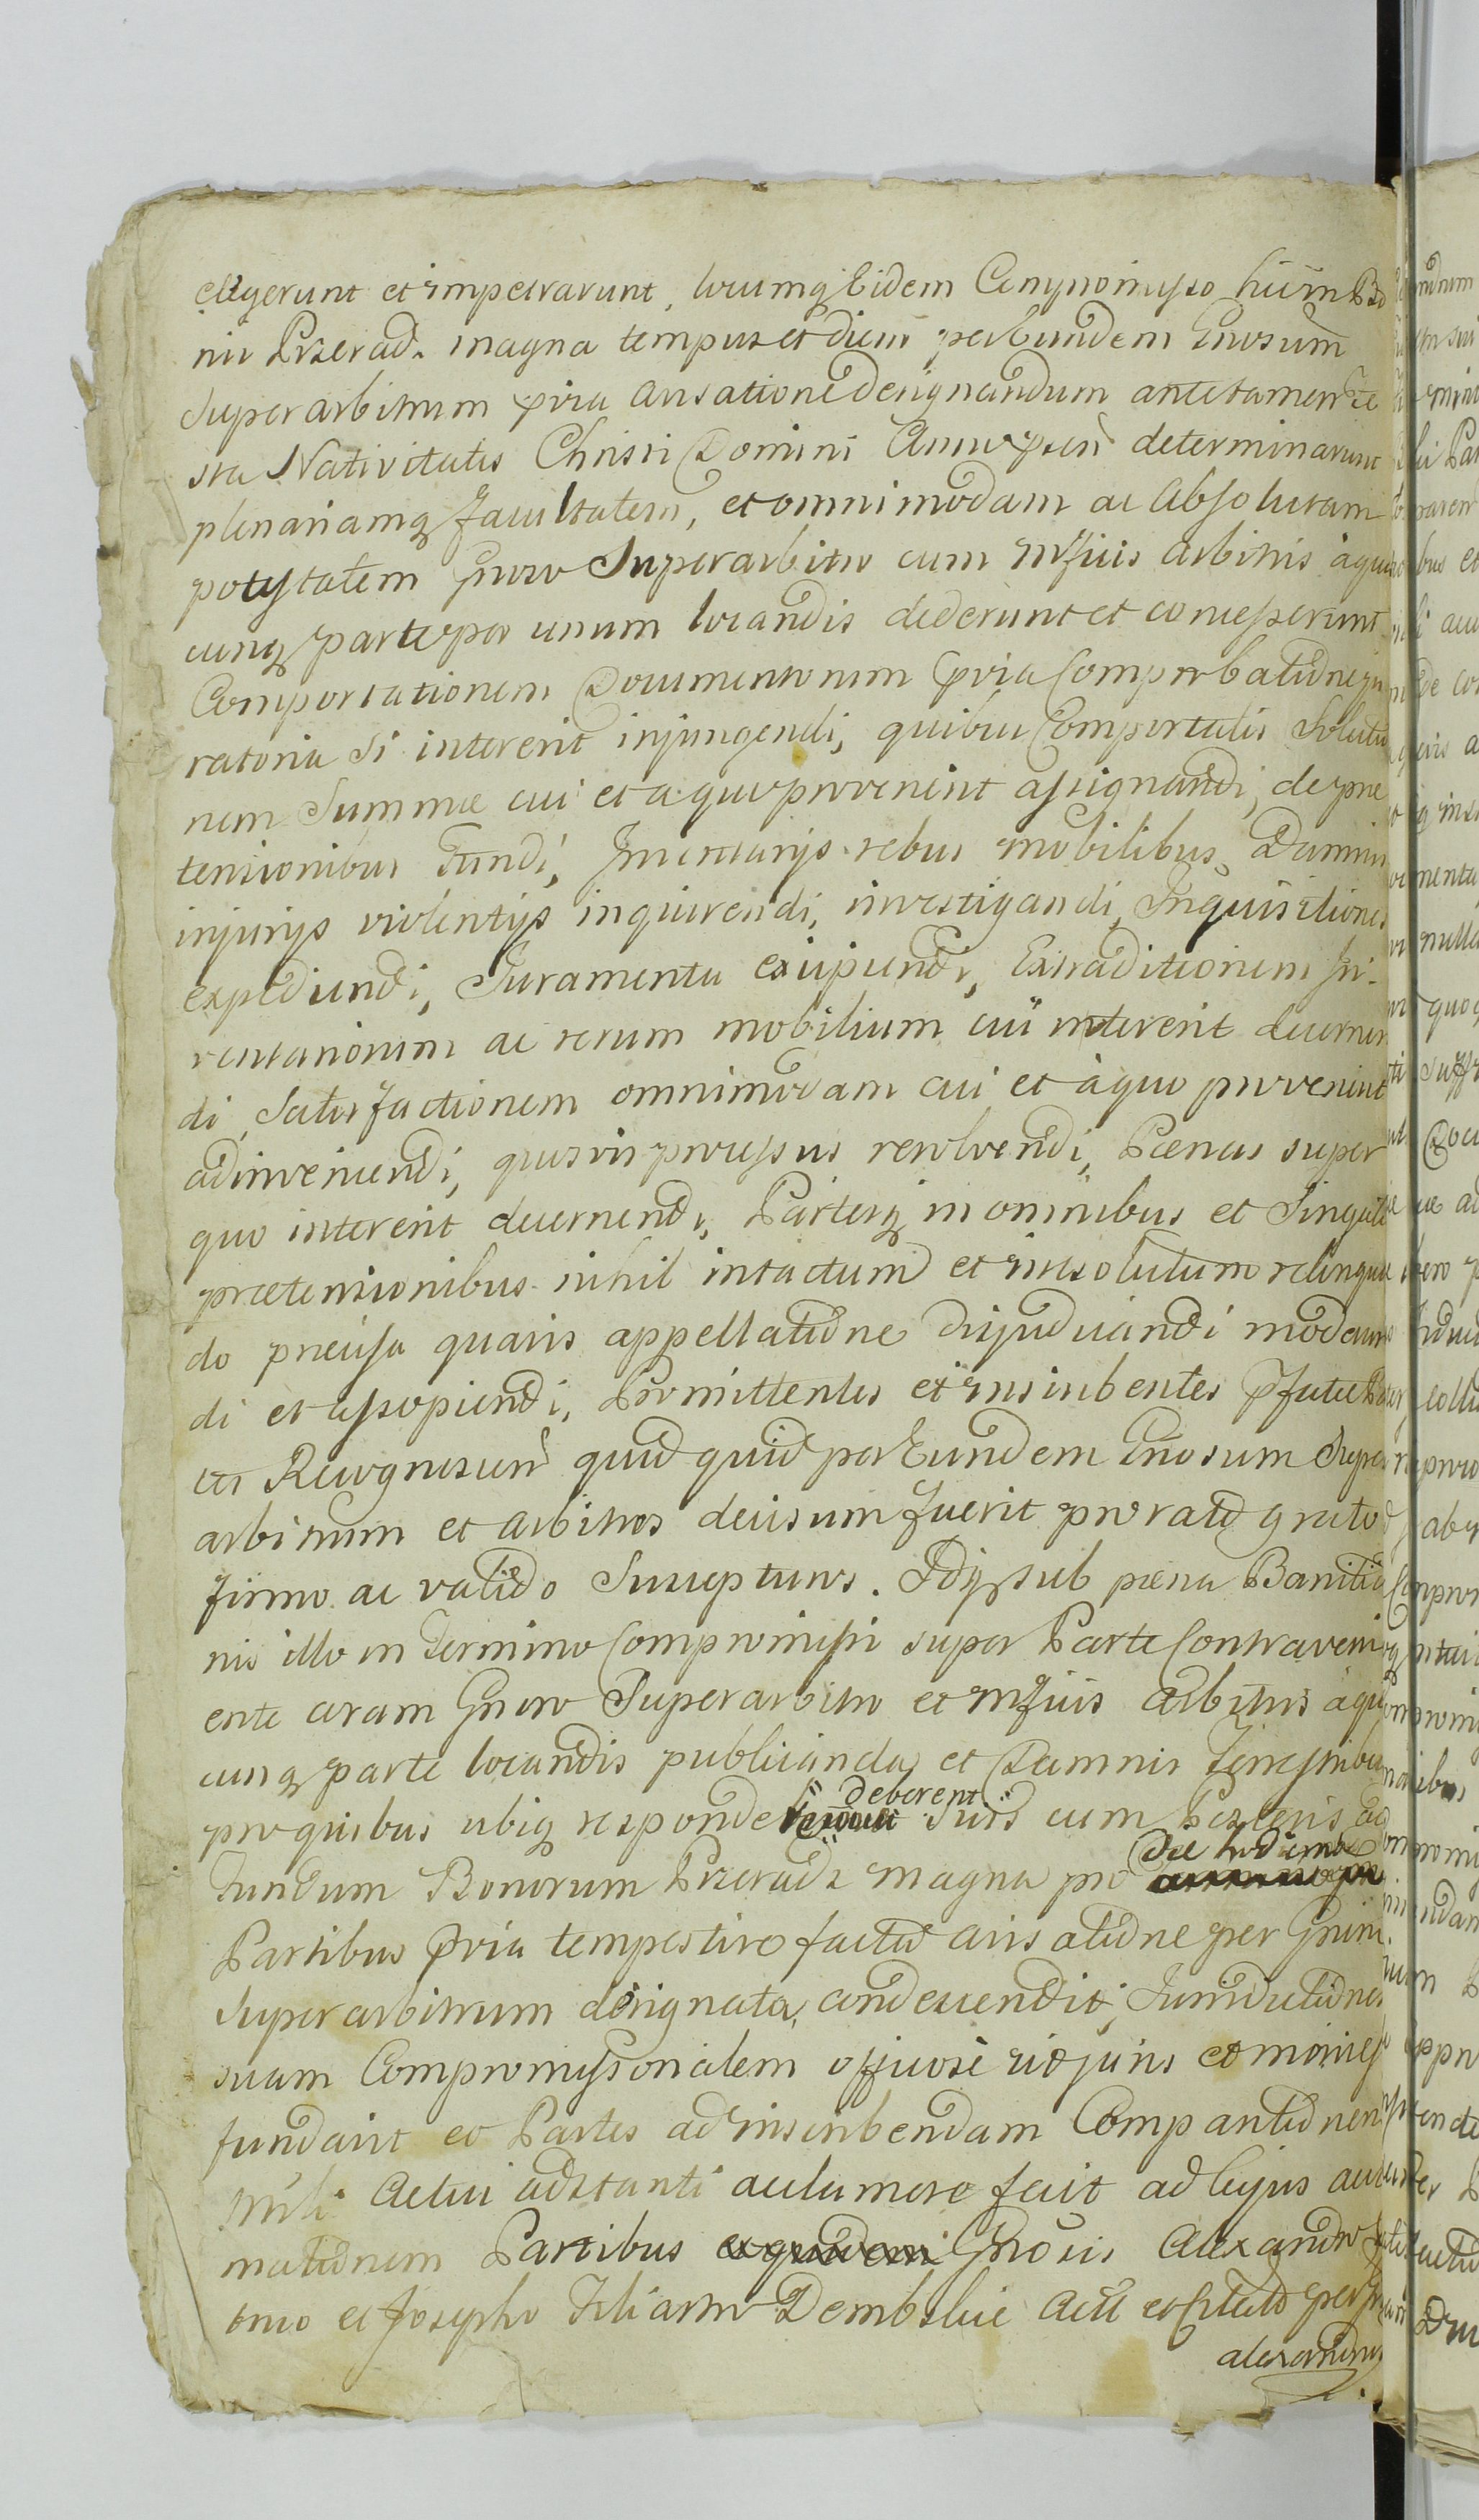 eligerunt et impetrarunt, locumq Eidem Compromisso huim Bo
nis Przerad. magna tempus et diem per Eundem Gnosum
Superarbitrum pria Avisatione designandum ante tamen Fe
sta Nativitatis Christi Domini Anni psen determinarunt
plenariamq facultatem, et omnimodam ac Absolutam
potestatem Gnoso Superarbitro cum infriis Arbitris àqua
cunq parte per unum locandis dederunt et concesserunt
Comportationem Documentorum pria Comprobatione ju
ratoria si intererit injungendi, quibus Comportatis Solutio
nem Summæ cui et a quo provenerit assignandi, de præ
tensionibus Fundi, Inventarijs rebus mobilibus, Damnis
injurijs violentijs inquirendi, investigandi, Inquisitiones
expediendi, Juramenta excipiendi, Extraditionem In-
ventariorum ac rerum mobilium cui intererit decernen
di, Satisfactionem omnimodam cui et à quo provenerit
adinveniendi, quosvis processus resolvendi, Pænas super
quo intererit decernendi, Partesq in omnibus et Singulis
prætensionibus nihil intactum et insolutum relinquen
do præcisa quavis appellatione dijudicandi moderan
di et assopiendi, Promittentes et inscribentes pfatæ Par
tes Recognoscen quid quid per Eundem Gnosum Super
arbitrum et Arbitros decisum fuerit pro rato grato
firmo ac valido Suscepturos. Idq sub pæna Banitio
nis illo in Termino Compromissi super Parte Contraveni
ente coram Gnoso Superarbitro et infriis Arbitris àqua
cunq parte locandis publicanda et Damnis Terrestribus
pro quibus ubiq responde deberent Suis cum Cæteris ad
Fundum Bonorum Przeradz magna pro die hodierna
Partibus pria tempestivo facta avisatione per Gnosum
Superarbitrum designata, condescendit, Jurisdictionem
suam Compromissorialem officiose
fundavit et Partes ad inscribendam Compartionem
Actui adstanti acclamare fecit ad cujus accla
mationem Partibus Gnosis Alexandro
et Josepho Dembskie Act et Citato per
alexandrum